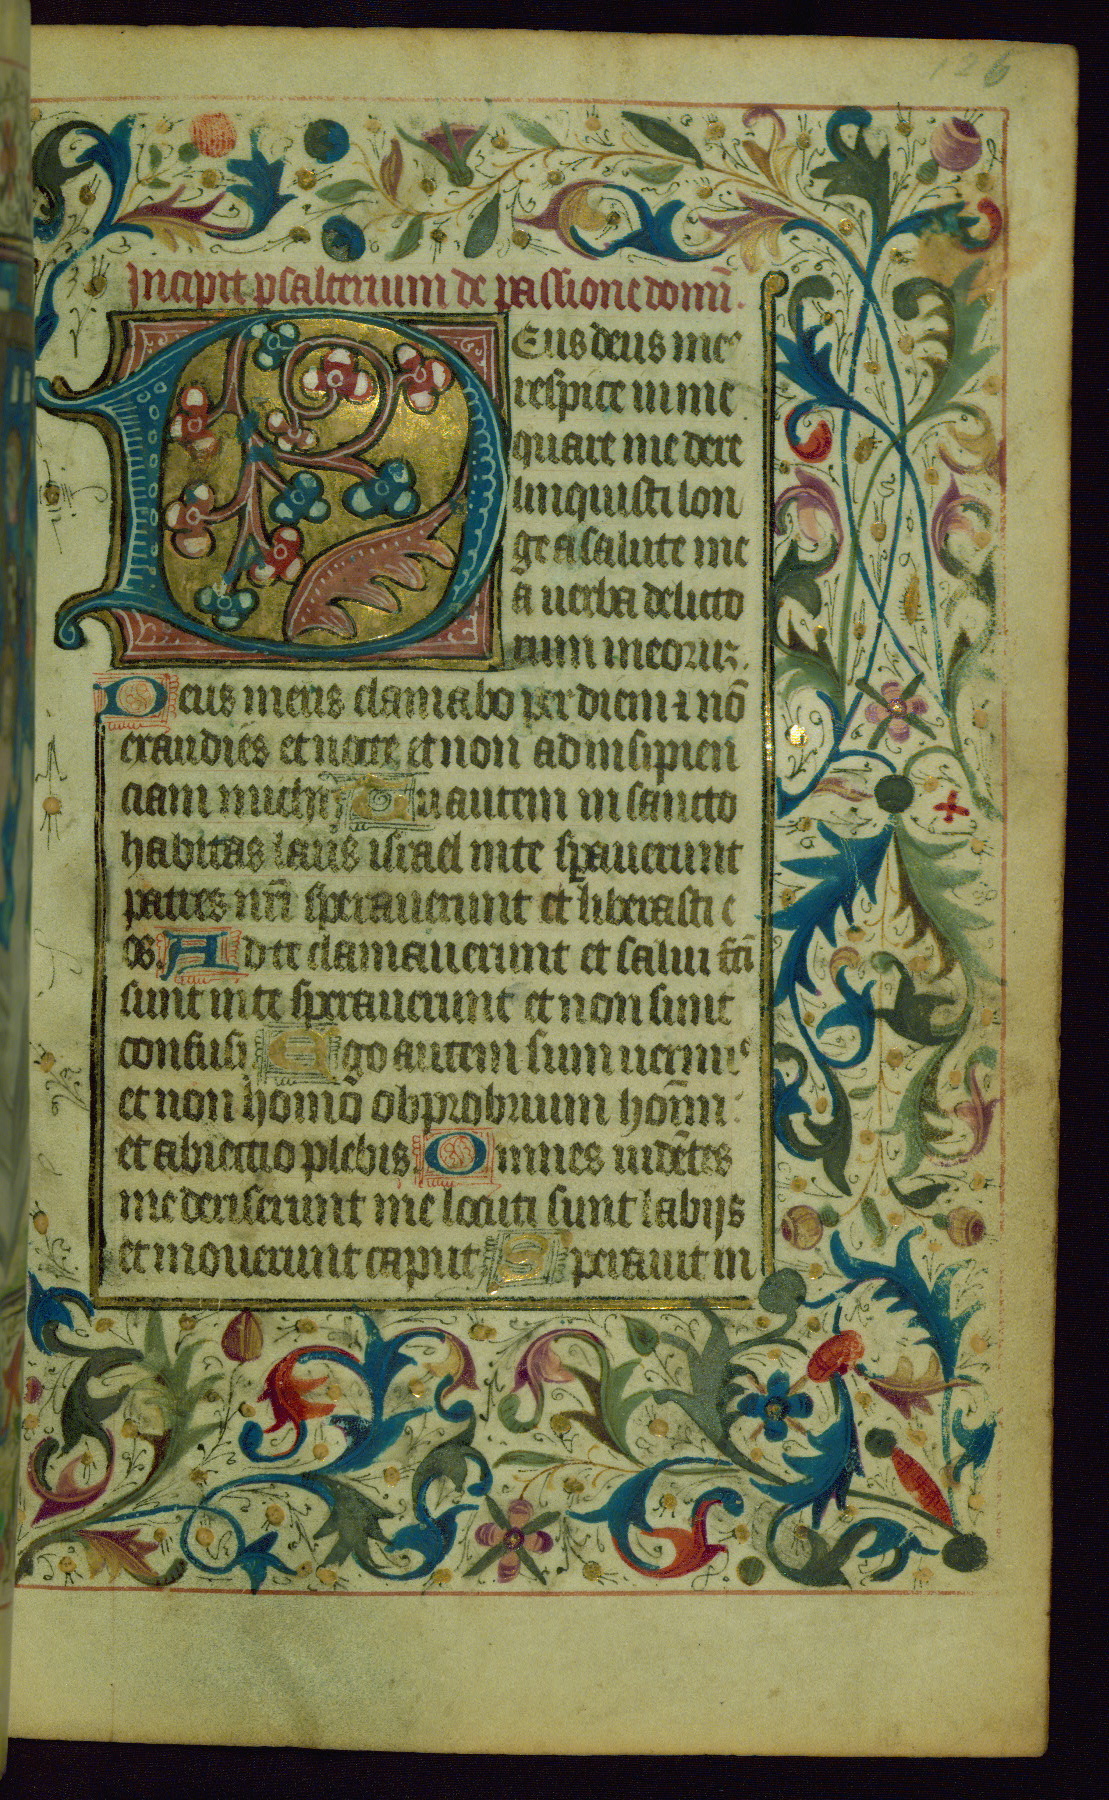 126
Incipit psalterium de passione domī.
DEus deus me⁹
respice in me
quare me dere
linquisti lon
ge a salute me
a uerba delicto
rum meoruꝫ.
Deus meus clamabo per diem ⁊ nō
exaudies et nocte et non ad insipien
ciam michi Tu autem in sancto
habitas laus israel in te sꝑauerunt
patres nr̄i sperauerunt et liberasti e
os Ad te clamauerunt et salui fc̄i
sunt in te sperauerunt et non sunt
confusi Ego autem sum uermis
et non homo obprobrium hoīm
et abiectio plebis Omnes uidētes
me deriserunt me locuti sunt labijs
et mouerunt caput Sperauit in